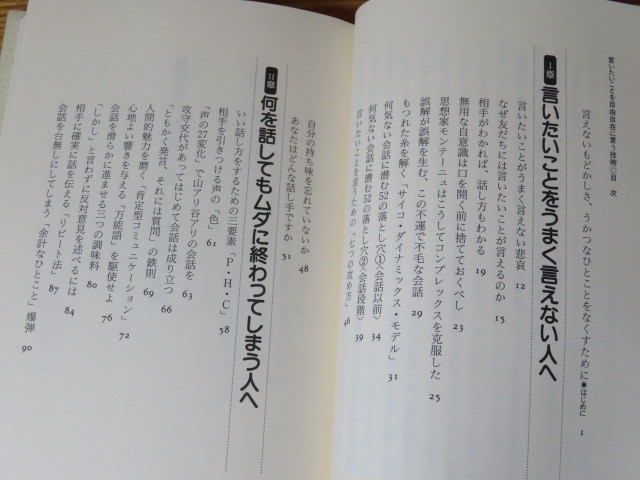 言いたいことを自由自在に言う技術◎目 次
言えないもどかしさ、うかつなひとことをなくすために●はじめに 1
I章 言いたいことをうまく言えない人へ
言いたいことがうまく言えない悲哀 12
なぜ友だちには言いたいことが言えるのか 15
相手がわかれば、話し方もわかる 19
無用な自意識は口を開く前に捨てておくべし 23
思想家モンテーニュはこうしてコンプレックスを克服した 25
誤解が誤解を生む、この不運で不毛な会話 29
もつれた糸を解く「サイコ・ダイナミックス・モデル」 31
何気ない会話に潜む52の落とし穴①〈会話以前〉 34
何気ない会話に潜む52の落とし穴②〈会話段階〉 39
言いたいことを言うための「七つの攻め方」 46
自分の持ち味を忘れていないか 48
あなたはどんな話し手ですか 51
II章 何を話してもムダに終わってしまう人へ
いい話し方をするための三要素「P・H・C」 58
相手を引きつける声の「色」 61
「声の27変化」で山アリ谷アリの会話を 63
攻守交代があってはじめて会話は成り立つ 66
「ともかく発言、それには質問」の鉄則 69
人間的魅力を磨く「肯定型コミュニケーション」 72
心地よい響きを与える「万能語」を駆使せよ 76
会話を滑らかに進ませる三つの調味料 80
「しかし」と言わずに反対意見を述べるには 84
相手に確実に話を伝える「リピート法」 87
会話を台無しにしてしまう「余計なひとこと」爆弾 90